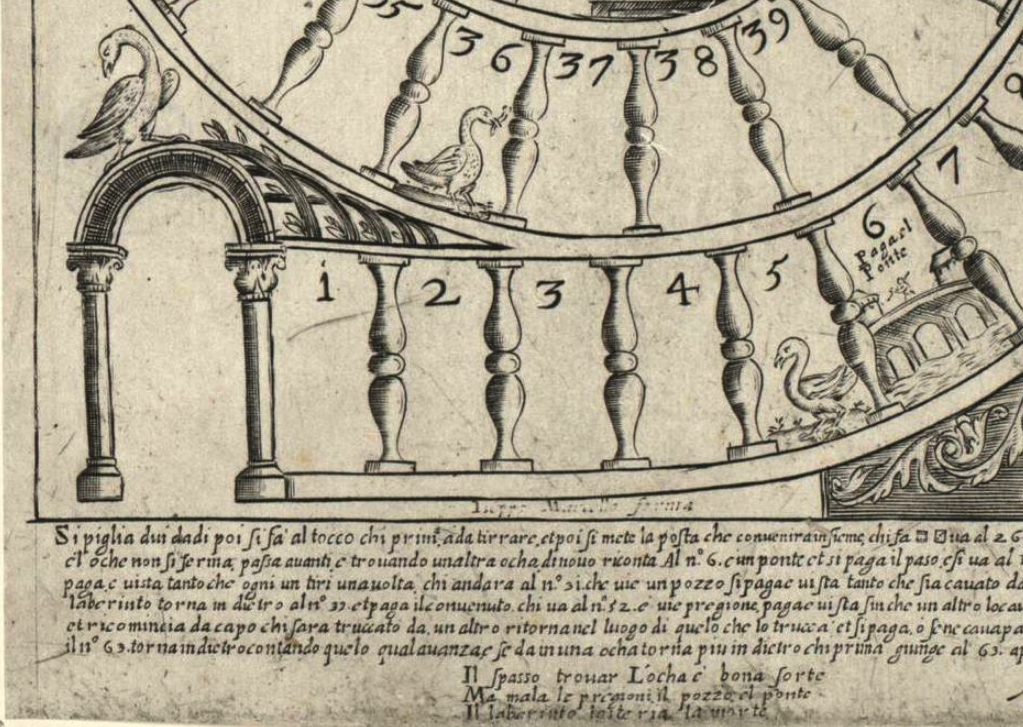 35
36
37
38
39
8
7
6
Paga el
Ponte
1
2
3
4
5
forma
Si piglia dui dadi poi si fa al tocco chi prim, a da tirrare, et poi si mete la posta che convenira insieme, chi fa ua al 26
el oche non si ferma, passa auanti, e trouando unaltra ocha, di nuovo riconta. Al n.º 6. e un ponte et si paga il paso, e si va al
paga, e vi sta tanto che ogni un tiri una uolta, chi andara al n.º 31. che vie un pozzo si paga e ui sta tanto che sia cauato da
laberinto torna in dietro al n.º 39. et paga il conuenuto. chi va al n.º 52. e vie pregione, paga e ui sta sin che un altro lo cau
et ricomincia da capo chi sara truccato da, un altro ritorna nel luogo di quelo che lo trucca et si paga, o se ne caua pa
il n.º 63. torna in dietro contando quelo qual auanza, e se da in una ocha torna piu in dietro chi prima giunge al 63.
Il spasso trouar L'ocha e bona sorte
Ma mala le pregioni, il pozzo, el ponte
Il laberinto la morte